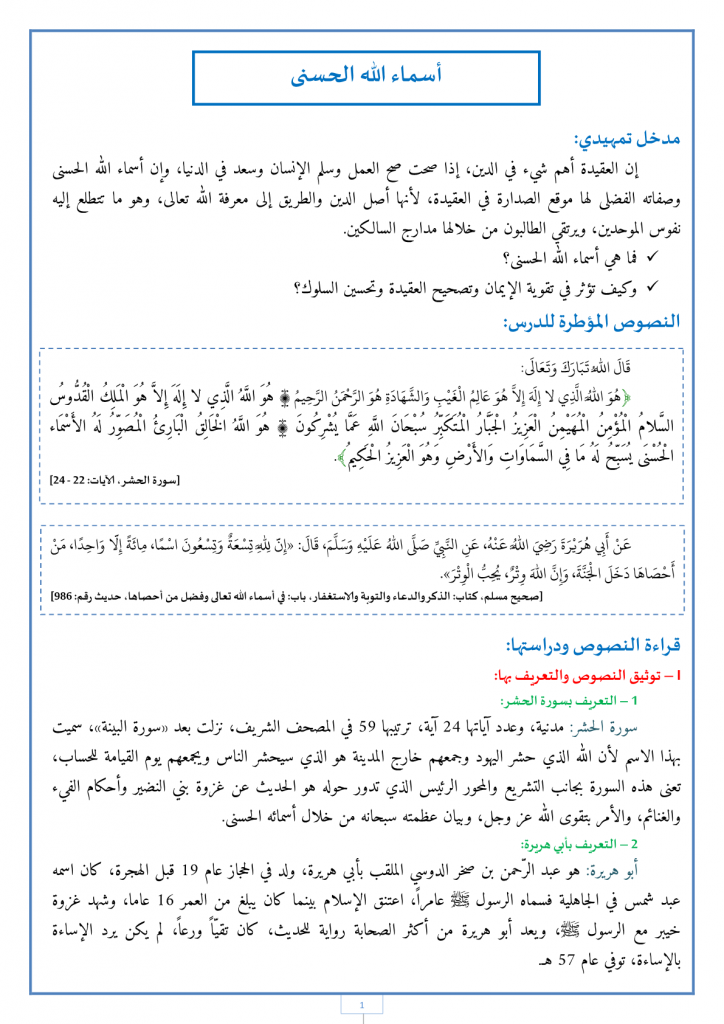 أسماء الله الحسنى
مدخل تمهيدي:
إن العقيدة أهم شيء في الدين، إذا صحت صح العمل وسلم الإنسان وسعد في الدنيا، وإن أسماء الله الحسنى
وصفاته الفضلى لها موقع الصدارة في العقيدة، لأنها أصل الدين والطريق إلى معرفة الله تعالى، وهو ما تتطلع إليه
نفوس الموحدين، ويرتقي الطالبون من خلالها مدارج السالكين.
✓ فما هي أسماء الله الحسنى؟
✓ وكيف تؤثر في تقوية الإيمان وتصحيح العقيدة وتحسين السلوك؟
النصوص المؤطرة للدرس:
قَالَ اللهُ تَبَارَكَ وَتَعَالَى:
﴿هُوَ اللهُ الَّذِي لا إِلَهَ إِلاَّ هُوَ عَالِمُ الْغَيْبِ وَالشَّهَادَةِ هُوَ الرَّحْمَنُ الرَّحِيمُ ۞ هُوَ اللَّهُ الَّذِي لا إِلَهَ إِلاَّ هُوَ الْمَلِكُ الْقُدُّوسُ
السَّلامُ الْمُؤْمِنُ الْمُهَيْمِنُ الْعَزِيزُ الْجَبَّارُ الْمُتَكَبِّرُ سُبْحَانَ اللَّهِ عَمَّا يُشْرِكُونَ ۞ هُوَ اللَّهُ الْخَالِقُ الْبَارِئُ الْمُصَوِّرُ لَهُ الأَسْمَاء
الْحُسْنَى يُسَبِّحُ لَهُ مَا فِي السَّمَاوَاتِ وَالأَرْضِ وَهُوَ الْعَزِيزُ الْحَكِيمُ﴾.
[سورة الحشر، الآيات: 22 - 24]
عَنْ أَبِي هُرَيْرَةَ رَضِيَ اللهُ عَنْهُ، عَنِ النَّبِيِّ صَلَّى اللهُ عَلَيْهِ وَسَلَّمَ، قَالَ: «إِنَّ لِلهِ تِسْعَةً وَتِسْعُونَ اسْمًا، مِائَةً إِلَّا وَاحِدًا، مَنْ
أَحْصَاهَا دَخَلَ الْجَنَّةَ، وَإِنَّ اللهَ وِتْرٌ، يُحِبُّ الْوِتْرَ».
[صحيح مسلم، كتاب: الذكر والدعاء والتوبة والاستغفار، باب: في أسماء الله تعالى وفضل من أحصاها، حديث رقم: 986]
قراءة النصوص ودراستها:
I – توثيق النصوص والتعريف بها:
1 – التعريف بسورة الحشر:
سورة الحشر: مدنية، وعدد آياتها 24 آية، ترتيبها 59 في المصحف الشريف، نزلت بعد «سورة البينة»، سميت
بهذا الاسم لأن الله الذي حشر اليهود وجمعهم خارج المدينة هو الذي سيحشر الناس ويجمعهم يوم القيامة للحساب،
تعنى هذه السورة بجانب التشريع والمحور الرئيس الذي تدور حوله هو الحديث عن غزوة بني النضير وأحكام الفيء
والغنائم، والأمر بتقوى الله عز وجل، وبيان عظمته سبحانه من خلال أسمائه الحسنى.
2 – التعريف بأبي هريرة:
أبو هريرة: هو عبد الرّحمن بن صخر الدوسي الملقب بأبي هريرة، ولد في الحجاز عام 19 قبل الهجرة، كان اسمه
عبد شمس في الجاهلية فسماه الرسول ﷺ عامراً، اعتنق الإسلام بينما كان يبلغ من العمر 16 عاما، وشهد غزوة
خيبر مع الرسول ﷺ، ويعد أبو هريرة من أكثر الصحابة رواية للحديث، كان تقيّاً ورعاً، لم يكن يرد الإساءة
بالإساءة، توفي عام 57 هـ.
1